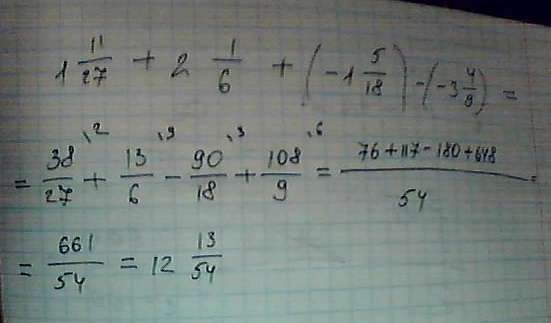 1 11/27 + 2 1/6 + (-1 5/18) - (-3 4/9) =
= 38/27 \2 + 13/6 \9 - 90/18 \3 + 108/9 \6 = 76 + 117 - 180 + 648 / 54 =
= 661/54 = 12 13/54